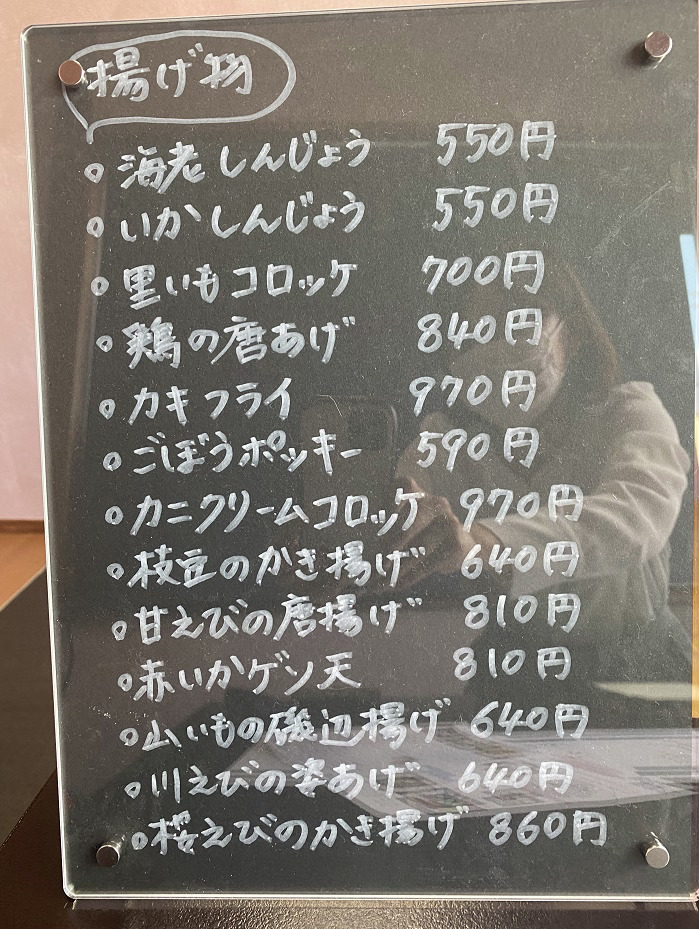 揚げ物
。海老しんじょう 550円
。いかしんじょう 550円
。里いもコロッケ 700円
。鶏の唐あげ 840円
。カキフライ 970円
。ごぼうポッキー 590円
。カニクリームコロッケ 970円
。枝豆のかき揚げ 640円
。甘えびの唐揚げ 810円
。赤いかゲソ天 810円
。山いもの磯辺揚げ 640円
。川えびの姿あげ 640円
。桜えびのかき揚げ 860円